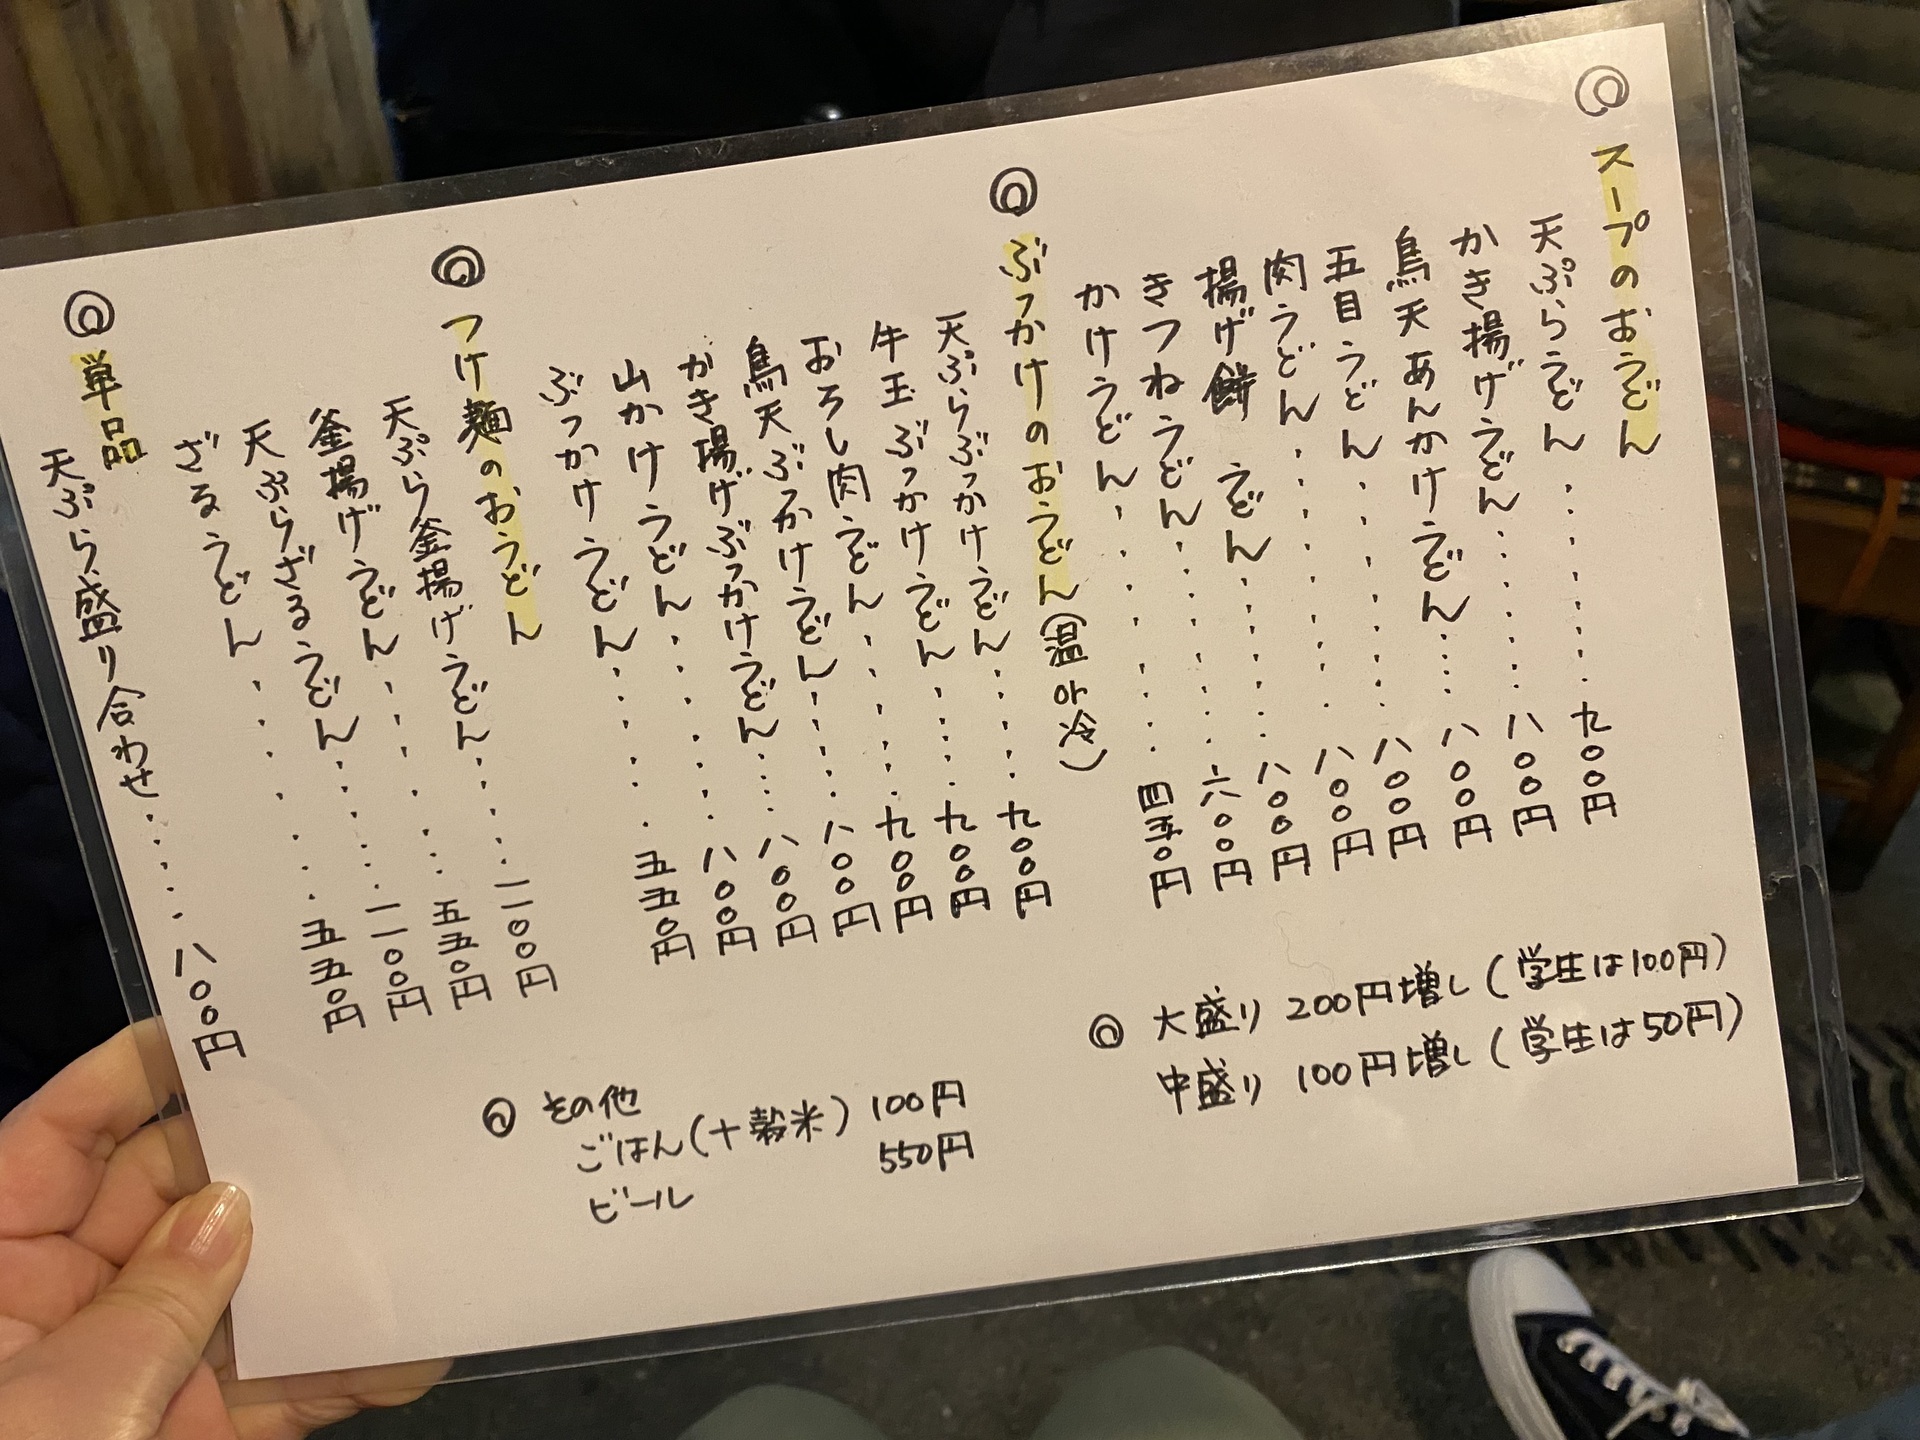 ◎スープのおうどん
天ぷらうどん……九〇〇円
かき揚げうどん……八〇〇円
鳥天あんかけうどん……八〇〇円
五目うどん……八〇〇円
肉うどん……八〇〇円
揚げ餅うどん……八〇〇円
きつねうどん……六〇〇円
かけうどん……四五〇円
◎ぶっかけのおうどん(温or冷)
天ぷらぶっかけうどん……九〇〇円
牛玉ぶっかけうどん……九〇〇円
おろし肉うどん……九〇〇円
鳥天ぶっかけうどん……八〇〇円
かき揚げぶっかけうどん……八〇〇円
山かけうどん……八〇〇円
ぶっかけうどん……五五〇円
◎つけ麺のおうどん
天ぷら釜揚げうどん……一一〇〇円
釜揚げうどん……五五〇円
天ぷらざるうどん……一一〇〇円
ざるうどん……五五〇円
◎単品
天ぷら盛り合わせ……八〇〇円
◎大盛り 200円増し(学生は100円)
中盛り 100円増し(学生は50円)
◎その他
ごはん(十穀米) 100円
ビール 550円